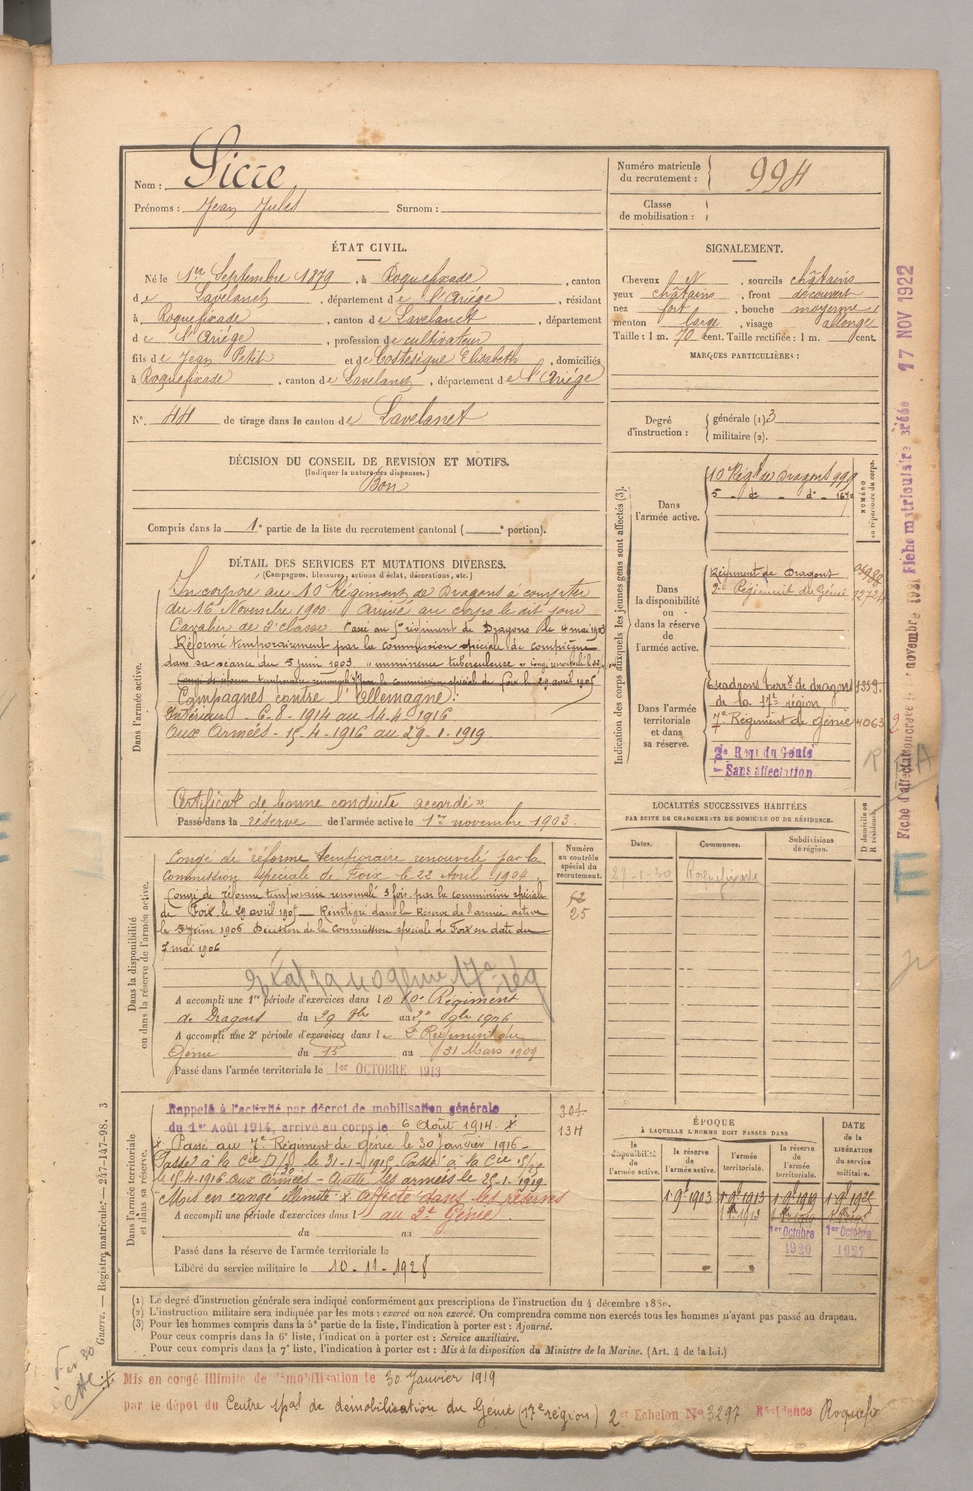 Nom : Sicre
Prénoms : Jean Jules Surnom :
Numéro matricule du recrutement : 994
Classe de mobilisation :
ÉTAT CIVIL.
Né le 1er Septembre 1879, à Roquefixade, canton
de Lavelanet, département de l'Ariège, résidant
à Roquefixade, canton de Lavelanet, département
de l'Ariège, profession de cultivateur
fils de Jean Petit et de Costesèque Elisabeth, domiciliés
à Roquefixade, canton de Lavelanet, département de l'Ariège
N° 44 de tirage dans le canton de Lavelanet
SIGNALEMENT.
Cheveux et, sourcils châtains
yeux châtains, front découvert
nez fort, bouche moyenne
menton large, visage allongé
Taille : 1 m. 70 cent. Taille rectifiée : 1 m. cent.
MARQUES PARTICULIÈRES :
Degré d'instruction : générale (1) 3
militaire (2).
DÉCISION DU CONSEIL DE REVISION ET MOTIFS.
(Indiquer la nature des dispenses.)
Bon
Compris dans la 1e partie de la liste du recrutement cantonal ( e portion).
DÉTAIL DES SERVICES ET MUTATIONS DIVERSES.
(Campagnes, blessures, actions d'éclat, décorations, etc.)
Dans l'armée active.
Incorporé au 10 Régiment de Dragons à compter
du 16 Novembre 1900. Arrivé au corps le dit jour
Cavalier de 2e classe. Passé au 5e régiment de Dragons le 4 mai 1903
Réformé temporairement par la commission spéciale de Compiègne
dans sa séance du 5 juin 1903. "imminence tuberculeuse"
Congé de réforme temporaire renouvelé par la commission spéciale de Foix le 29 avril 1905
Campagnes contre l'Allemagne :
Intérieur - 6-8-1914 au 14-4-1916
Aux Armées - 15-4-1916 au 29-1-1919.
Certificat de bonne conduite accordé "
Passé dans la réserve de l'armée active le 1er novembre 1903.
Dans la disponibilité ou dans la réserve de l'armée active.
Congé de réforme temporaire renouvelé par la
Commission spéciale de Foix le 22 Avril 1904.
Congé de réforme temporaire renouvelé 3 fois par la commission spéciale
de Foix le 29 avril 1905 - Réintégré dans la Réserve de l'armée active
le 5 juin 1906 Décision de la Commission spéciale de Foix en date du
7 mai 1906
A accompli une 1re période d'exercices dans le 10e Régiment
de Dragons du 29 8bre au 9bre 1906
A accompli une 2e période d'exercices dans le 2e Régiment du
Génie du 15 au 31 Mars 1909
Passé dans l'armée territoriale le 1er OCTOBRE 1913
Numéro au contrôle spécial du recrutement.
52
25
304
134
Dans l'armée territoriale et dans sa réserve.
Rappelé à l'activité par décret de mobilisation générale
du 1er Août 1914, arrivé au corps le 6 Août 1914. x
x Passé au 7e Régiment de Génie le 30 Janvier 1916 -
le 15-4-1916 aux armées - Quitte les armées le 25-1-1919.
Mis en congé illimité x affecté dans les réserves
A accompli une période d'exercices dans l au 2e Génie.
du au
Passé dans la réserve de l'armée territoriale le
Libéré du service militaire le 10-11-1928
Indication des corps auxquels les jeunes gens sont affectés (3).
NUMÉRO au répertoire du corps.
Dans l'armée active.
10 Régt de Dragons 999
5 de d° 1670
Dans la disponibilité ou dans la réserve de l'armée active.
Régiment de Dragons
2e Régiment du Génie
Dans l'armée territoriale et dans sa réserve.
Escadrons terrx de dragons 1359
de la 17e région
7e Régiment de Génie 4063
2e Régt du Génie
Sans affectation
LOCALITÉS SUCCESSIVES HABITÉES
PAR SUITE DE CHANGEMENTS DE DOMICILE OU DE RÉSIDENCE.
Dates. Communes. Subdivisions de région. D domicile ou R résidence.
27-1-30 Roquefixade
ÉPOQUE
A LAQUELLE L'HOMME DOIT PASSER DANS
DATE de la LIBÉRATION du service militaire.
la disponibilité de l'armée active. la réserve de l'armée active. l'armée territoriale. la réserve de l'armée territoriale.
1.9bre 1903 1.9bre 1913 1.9bre 1919 1.9bre 1925
1er Octobre 1920 1er Octobre 1927
(1) Le degré d'instruction générale sera indiqué conformément aux prescriptions de l'instruction du 4 décembre 1889.
(2) L'instruction militaire sera indiquée par les mots : exercé ou non exercé. On comprendra comme non exercés tous les hommes n'ayant pas passé au drapeau.
(3) Pour les hommes compris dans la 5e partie de la liste, l'indication à porter est : Ajourné.
Pour ceux compris dans la 6e liste, l'indication à porter est : Service auxiliaire.
Pour ceux compris dans la 7e liste, l'indication à porter est : Mis à la disposition du Ministre de la Marine. (Art. 4 de la loi.)
Mis en congé illimité de démobilisation le 30 Janvier 1919
par le dépôt du Centre spal de démobilisation du Génie (17e région) 2e Echelon No 3297 Résidence Roquefix
Guerre. — Registre matricule. — 247-147-98. 3
Fiche matriculaire créée 17 NOV 1922